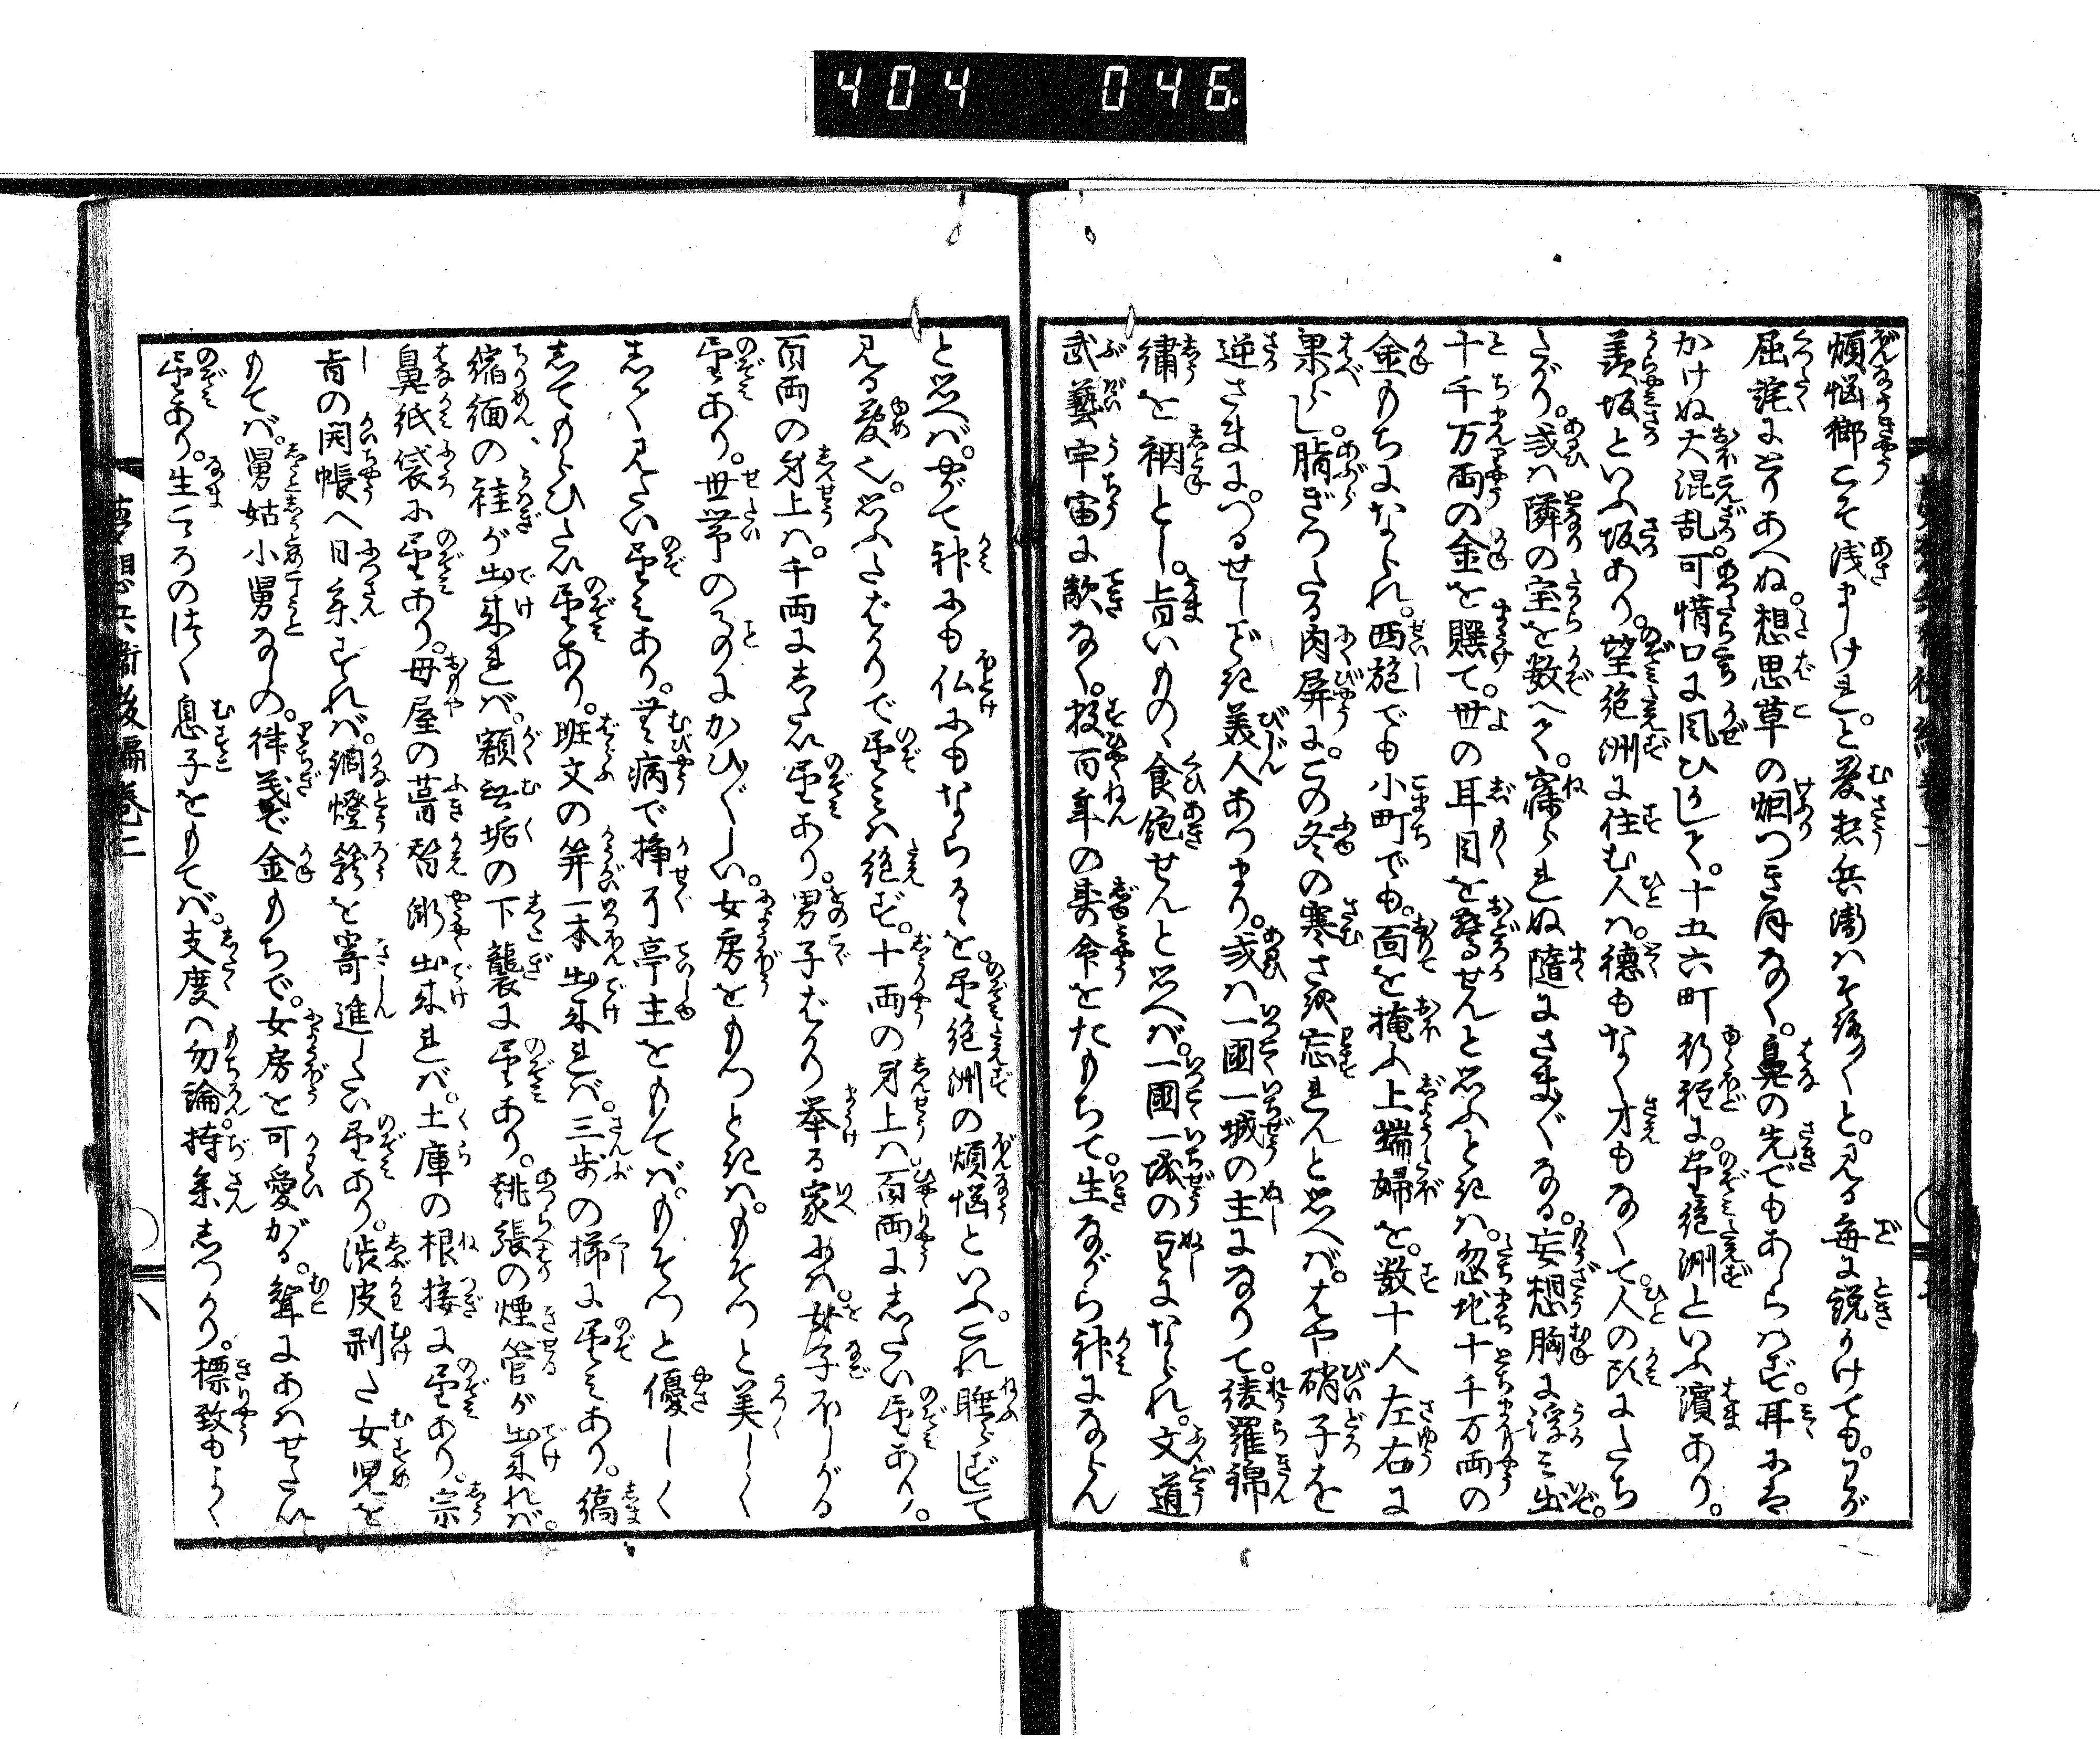 404 046
煩悩郷こそ浅ましけれ。と夢想兵衛はそゞろと。見る毎に説かけても。わが
屈詫にとりあへぬ。想思草の烟つき月なく。鼻の先でもあらはず。耳にも
かけぬ大混乱。可惜口に風ひかして。十五六町行程に。望絶洲といふ濱あり。
羨坂といふ坂あり。望絶洲に住む人は。徳もなく才もなくて。人の財にたち
たがり。或は隣の宝を数へて。寐られぬ隨にさま〴〵なる。妄想胸に浮み出。
十千万両の金を贐て。世の耳目を驚せんと思ふときは。忽地十千万両の
金もちになられ。西施でも小町でも。面を掩ふ上端婦を。数十人左右に
果らし。脂ぎつたる肉屏に。この冬の寒さを忘れんと思へば。はや硝子を
逆さまに。つるせしごとき美人あつまり。或は一國一城の主になりて。綾羅錦
繍を裀とし。旨いもの食飽せんと思へば。一國一城の主になられ。文道
武藝宇宙に敵なく。数百年の壽命をたもちて。生ながら神にならん
と思へば。やがて神にも仏にもならるゝを。望絶洲の煩悩といふ。これ睡らずして
見る夢也。思ふたばかりで望みは絶ず。十両の身上は百両にしたい望あり。
百両の身上は。千両にしたい望あり。男子ばかり挙る家には。女子ほしがる
望あり。世帯の事にかひ〴〵しい。女房をもつときは。もそつと美しく
して見たい望みあり。無病で挣ぐ亭主をもてば。もそつと優しく
してもらひたい望あり。斑文の笄一本出来れば。三歩の梯に望みあり。縞
縮緬の袿が出来れば。額無垢の下襲に望あり。誂張の煙管が出来れば。
鼻紙袋に望あり。母屋の葺替漸出来れば。土庫の根接に望あり。宗
旨の開帳へ日参すれば。網燈籠を寄進したい望あり。渋皮剥た女児を
もてば。舅姑小舅なしの。律義で金もちで。女房を可愛がる。聟にあはせたい
望あり。生ごゝろのはく息子をもてば。支度は勿論。持参しつかり。標致もよく
夢想兵衛後編巻二
八